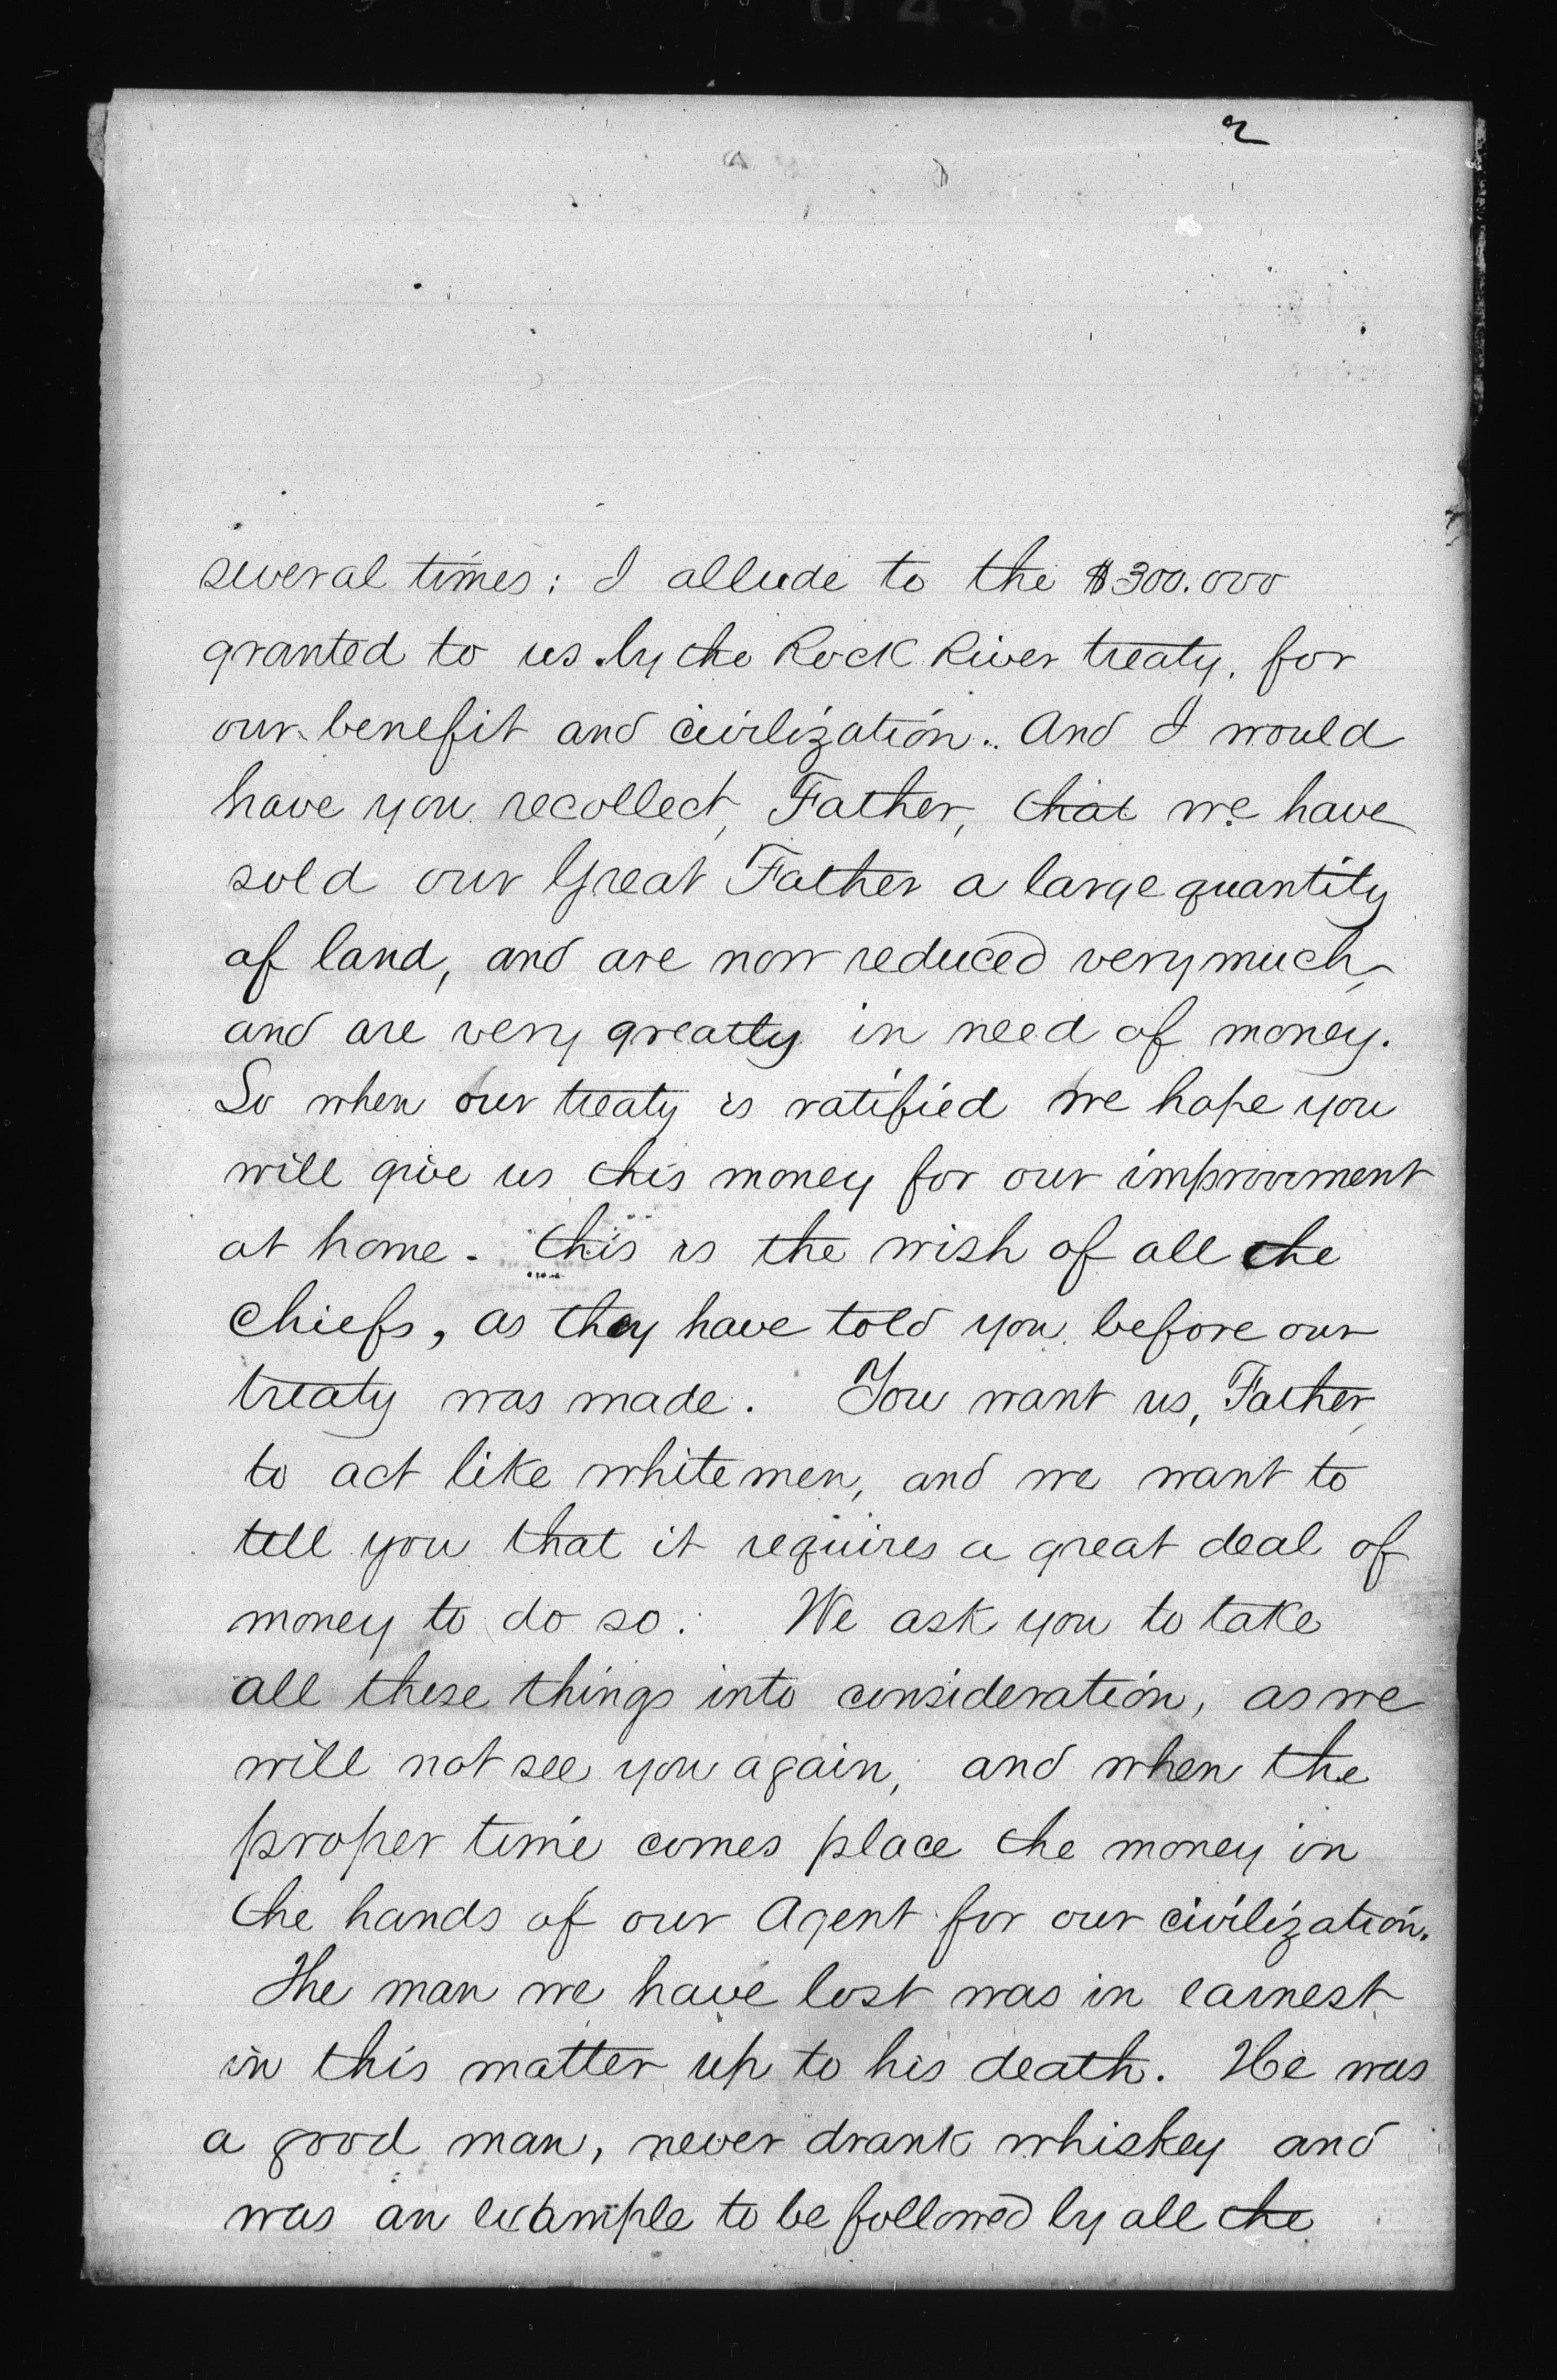 0438
2
several times; I allude to the $300.000
granted to us by the Rock River treaty, for
our benefit and civilization. And I would
have you recollect, Father, that we have
sold our Great Father a large quantity
of land, and are now reduced very much,
and are very greatly in need of money.
So when our treaty is ratified we hope you
will give us this money for our improvement
at home. this is the wish of all the
chiefs, as they have told you before our
treaty was made. You want us, Father,
to act like white men, and we want to
tell you that it requires a great deal of
money to do so. We ask you to take
all these things into consideration, as we
will not see you again, and when the
proper time comes place the money in
the hands of our Agent for our civilization.
The man we have lost was in earnest
in this matter up to his death. He was
a good man, never drank whiskey and
was an example to be followed by all the